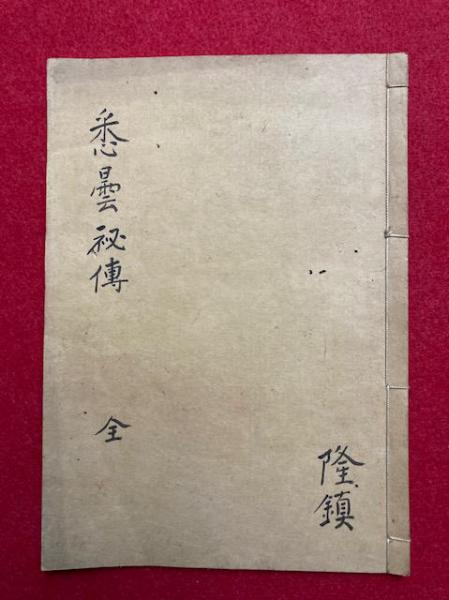 悉曇祕傳
全
隆鎮